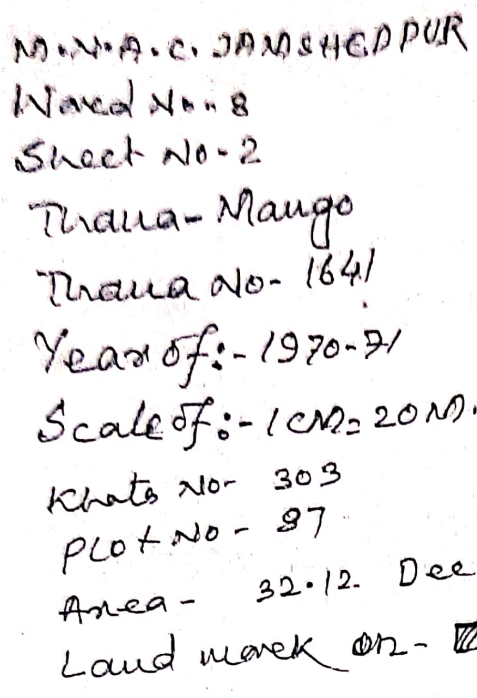 M.N.A.C. JAMSHEDPUR
Ward No.. 8
Sheet No-2
Thana- Mango
Thana No- 1641
Year of:- 1970-71
Scale of:- 1 CM= 20 M.
Khata No- 303
PLOT No- 87
Area- 32.12. Dec
Land mark on-